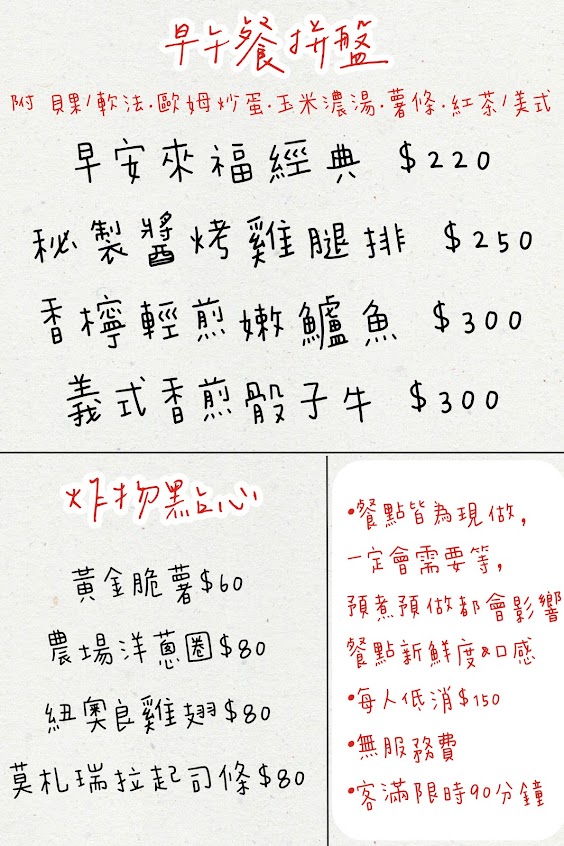 早午餐拼盤
附 貝果/軟法·歐姆炒蛋·玉米濃湯·薯條·紅茶/美式
早安來福經典 $220
秘製醬烤雞腿排 $250
香檸輕煎嫩鱸魚 $300
義式香煎骰子牛 $300
炸物點心
黃金脆薯$60
農場洋蔥圈$80
紐奧良雞翅$80
莫札瑞拉起司條$80
•餐點皆為現做,
一定會需要等,
預煮預做都會影響
餐點新鮮度&口感
•每人低消$150
•無服務費
•客滿限時90分鐘